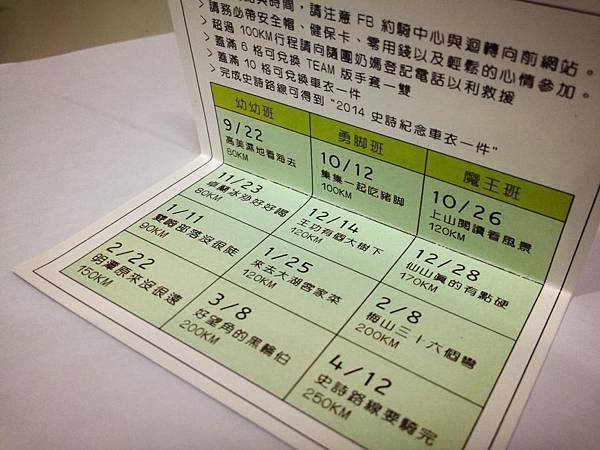 時間，請注意 FB 約騎中心與迴轉向前網站。
> 請務必帶安全帽、健保卡、零用錢以及輕鬆的心情參加。
> 超過 100KM行程請向隨團奶媽登記電話以利救援
> 蓋滿 6 格可兌換 TEAM 版手套一雙
> 蓋滿 10 格可兌換車衣一件
> 完成史詩路線可得到 "2014 史詩紀念車衣一件"
幼幼班 勇腳班 魔王班
9/22
高美濕地看海去
80KM
10/12
集集一起吃豬腳
100KM
10/26
上山閱讀看風景
120KM
11/23
卓蘭水沙好好喝
80KM
12/14
王功有個大樹下
120KM
12/28
仙山真的有點硬
170KM
1/11
雙崎部落沒很陡
90KM
1/25
來去大湖客家菜
120KM
2/8
梅山三十六個彎
200KM
2/22
明潭原來沒很遠
150KM
3/8
好望角的黑輪伯
200KM
4/12
史詩路線要騎完
250KM